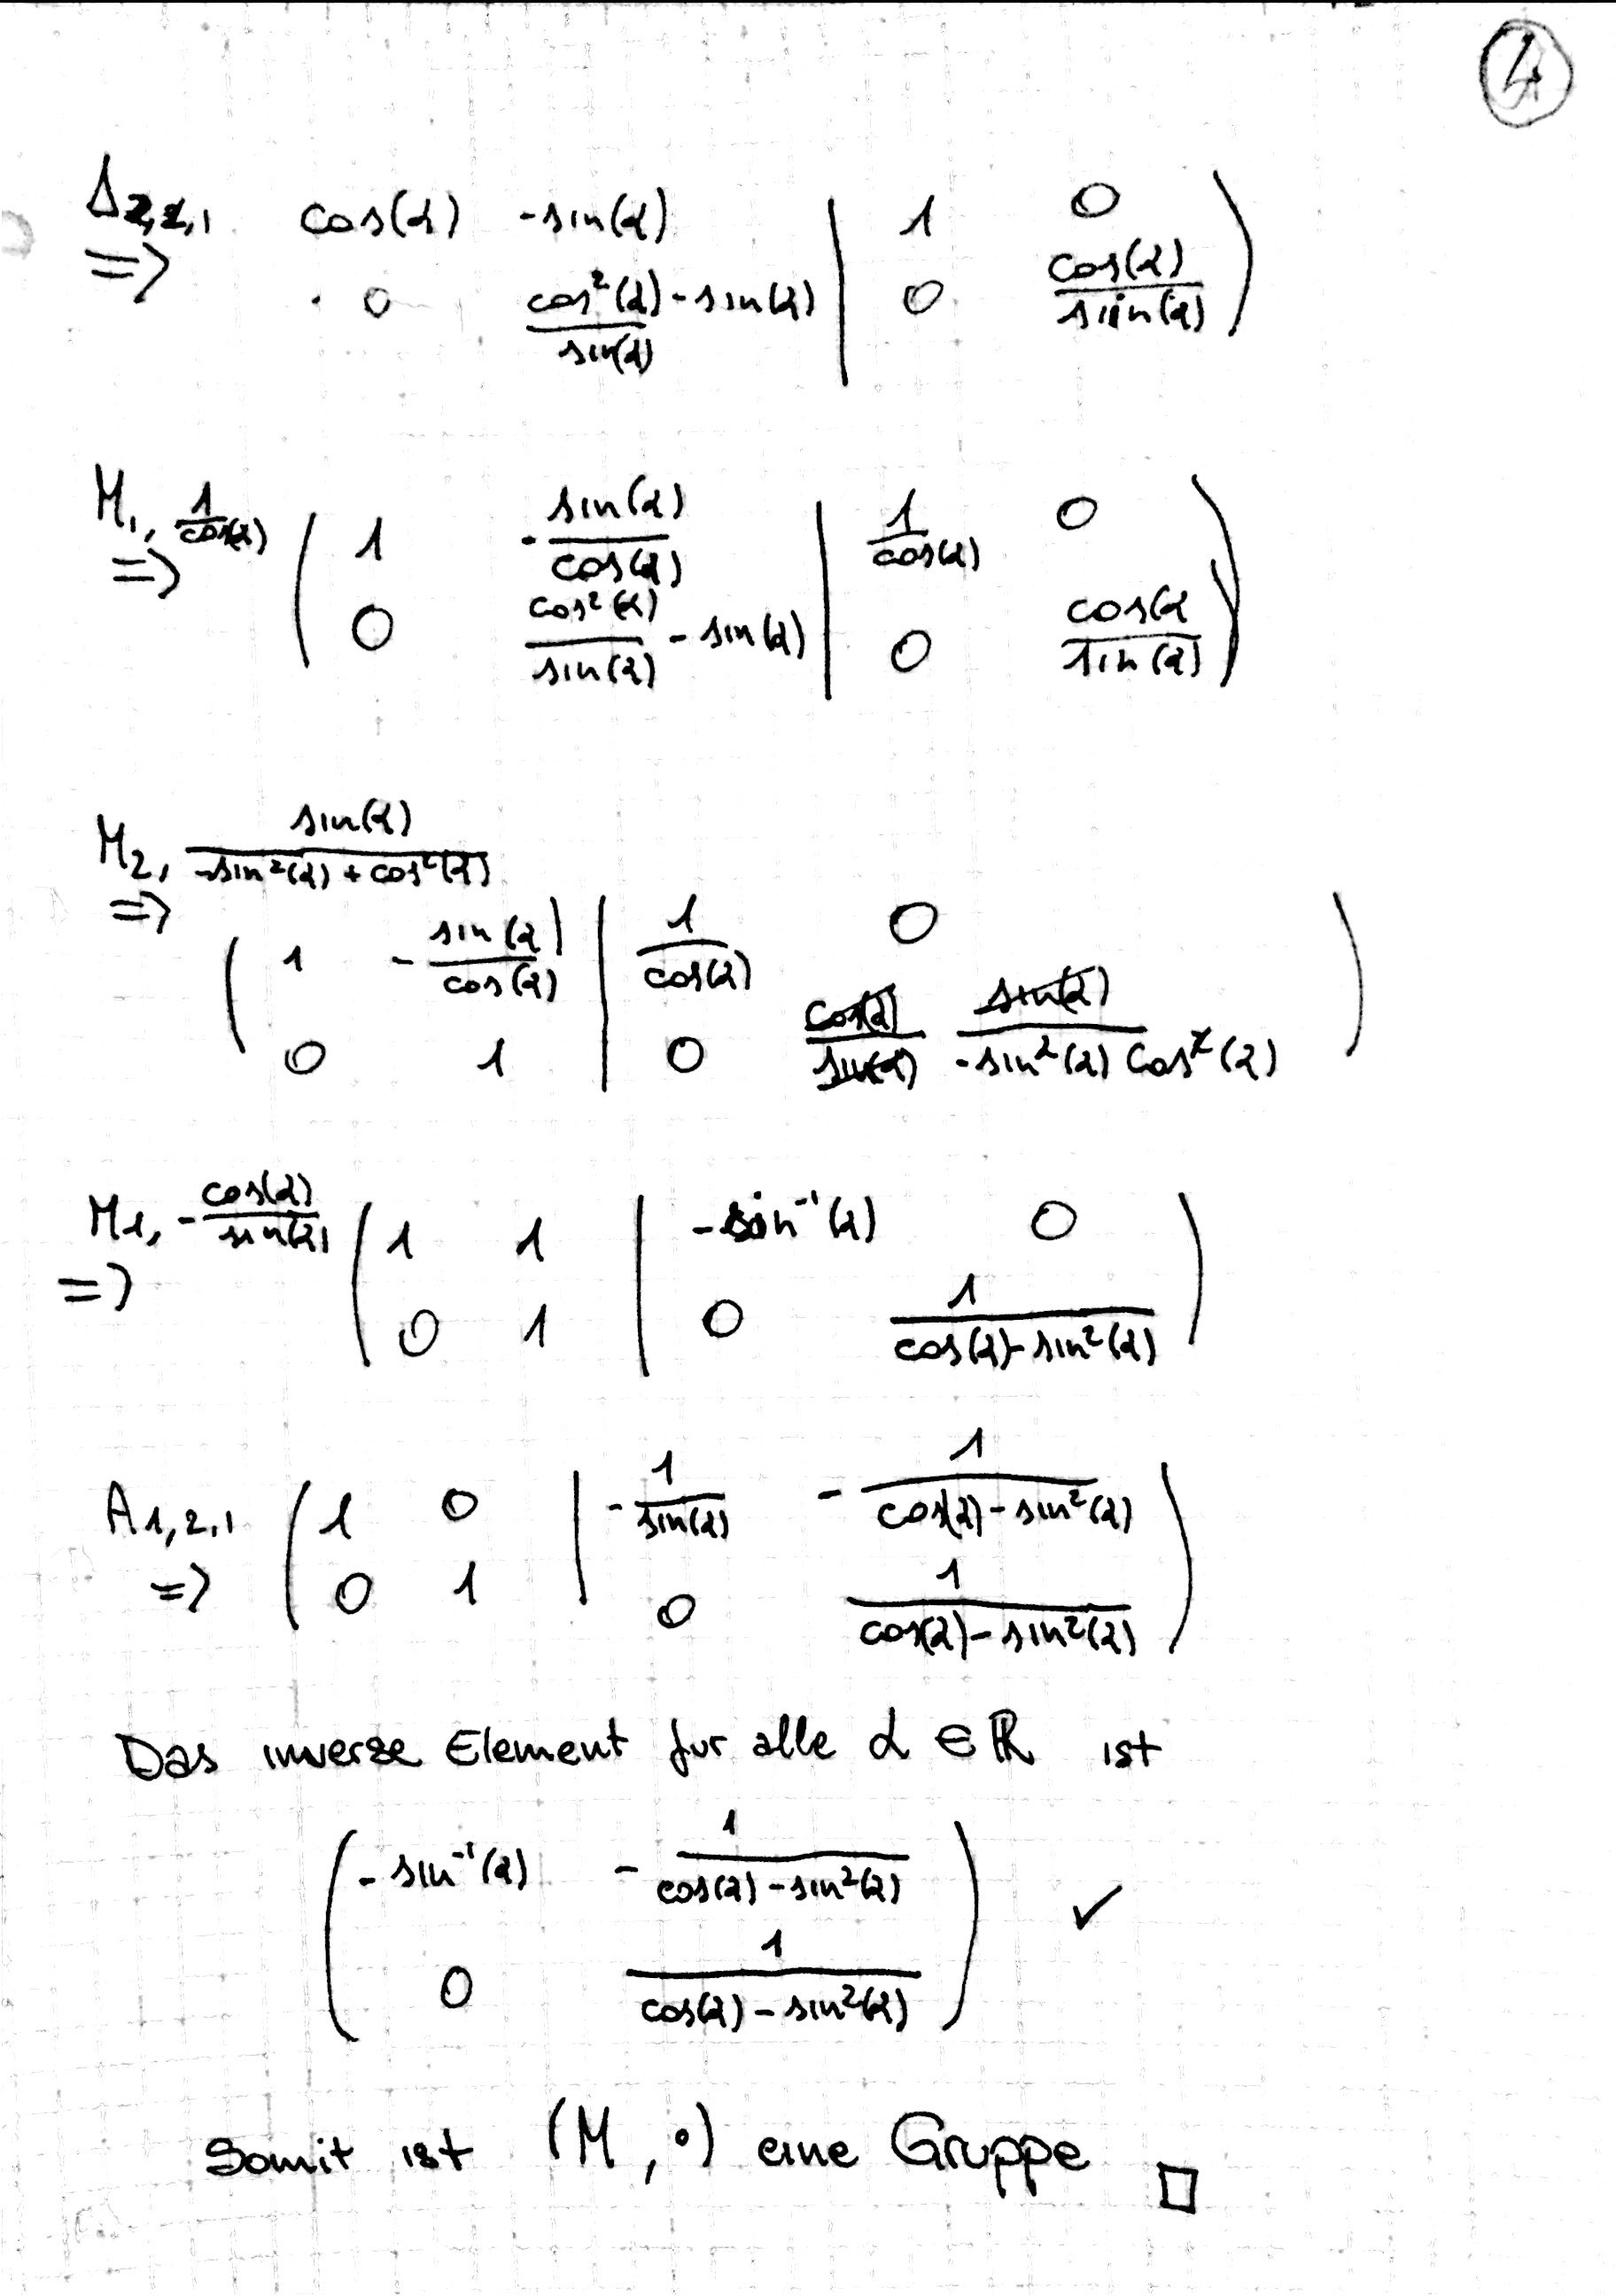 4
A₂,₁,₁ cos(α) -sin(α) | 1 0 )
=> 0 cos²(α)/sin(α) - sin(α) | 0 cos(α)/sin(α) )
M₁, 1/cos(α) ( 1 - sin(α)/cos(α) | 1/cos(α) 0 )
=> ( 0 cos²(α)/sin(α) - sin(α) | 0 cos(α/sin(α) )
M₂, sin(α)/(-sin²(α) + cos²(α))
=>
( 1 - sin(α)/cos(α) | 1/cos(α) 0 )
( 0 1 | 0 cos(α)/sin(α) sin(α)/(-sin²(α) cos²(α)) )
M1, - cos(α)/sin(α) ( 1 1 | -sin⁻¹(α) 0 )
=> ( 0 1 | 0 1/(cos(α)-sin²(α)) )
A1,2,1 ( 1 0 | - 1/sin(α) - 1/(cos(α) - sin²(α)) )
=> ( 0 1 | 0 1/(cos(α) - sin²(α)) )
Das inverse Element fur alle α ∈ ℝ ist
( - sin⁻¹(α) - 1/(cos(α) - sin²(α)) )
( 0 1/(cos(α) - sin²(α)) ) ✓
Somit ist (M, ∘) eine Gruppe □